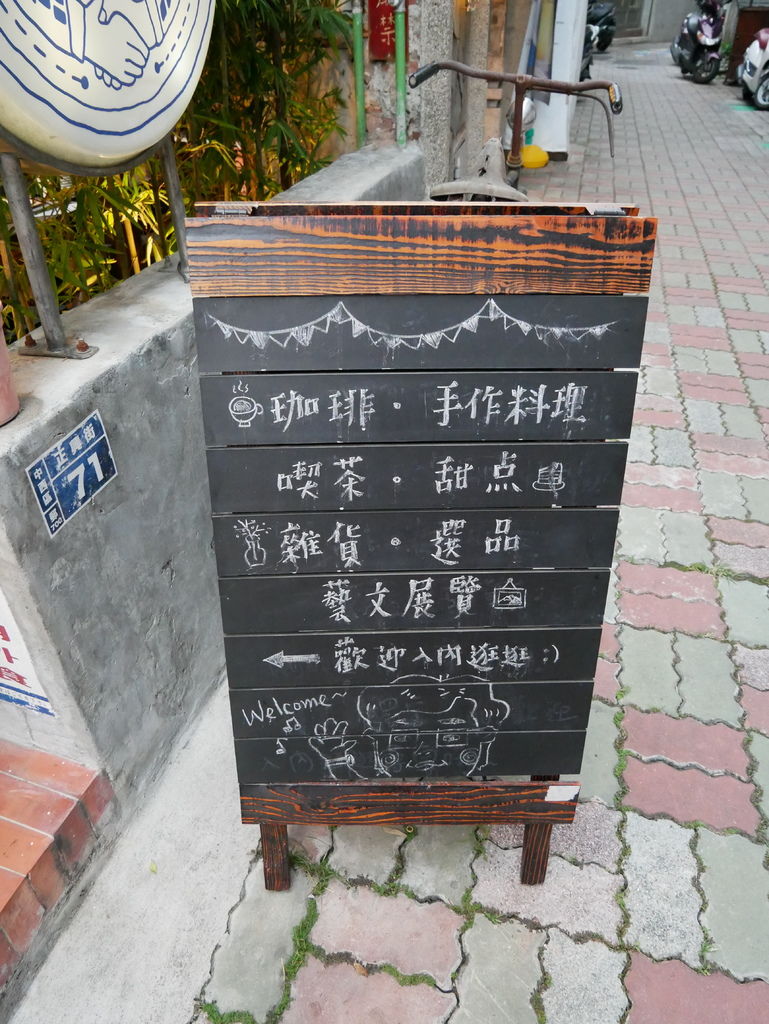 禁
珈琲。手作料理
喫茶。甜点
雜貨。選品
藝文展覽
← 歡迎入內逛逛 :)
Welcome~
中西區
正興街
71
700